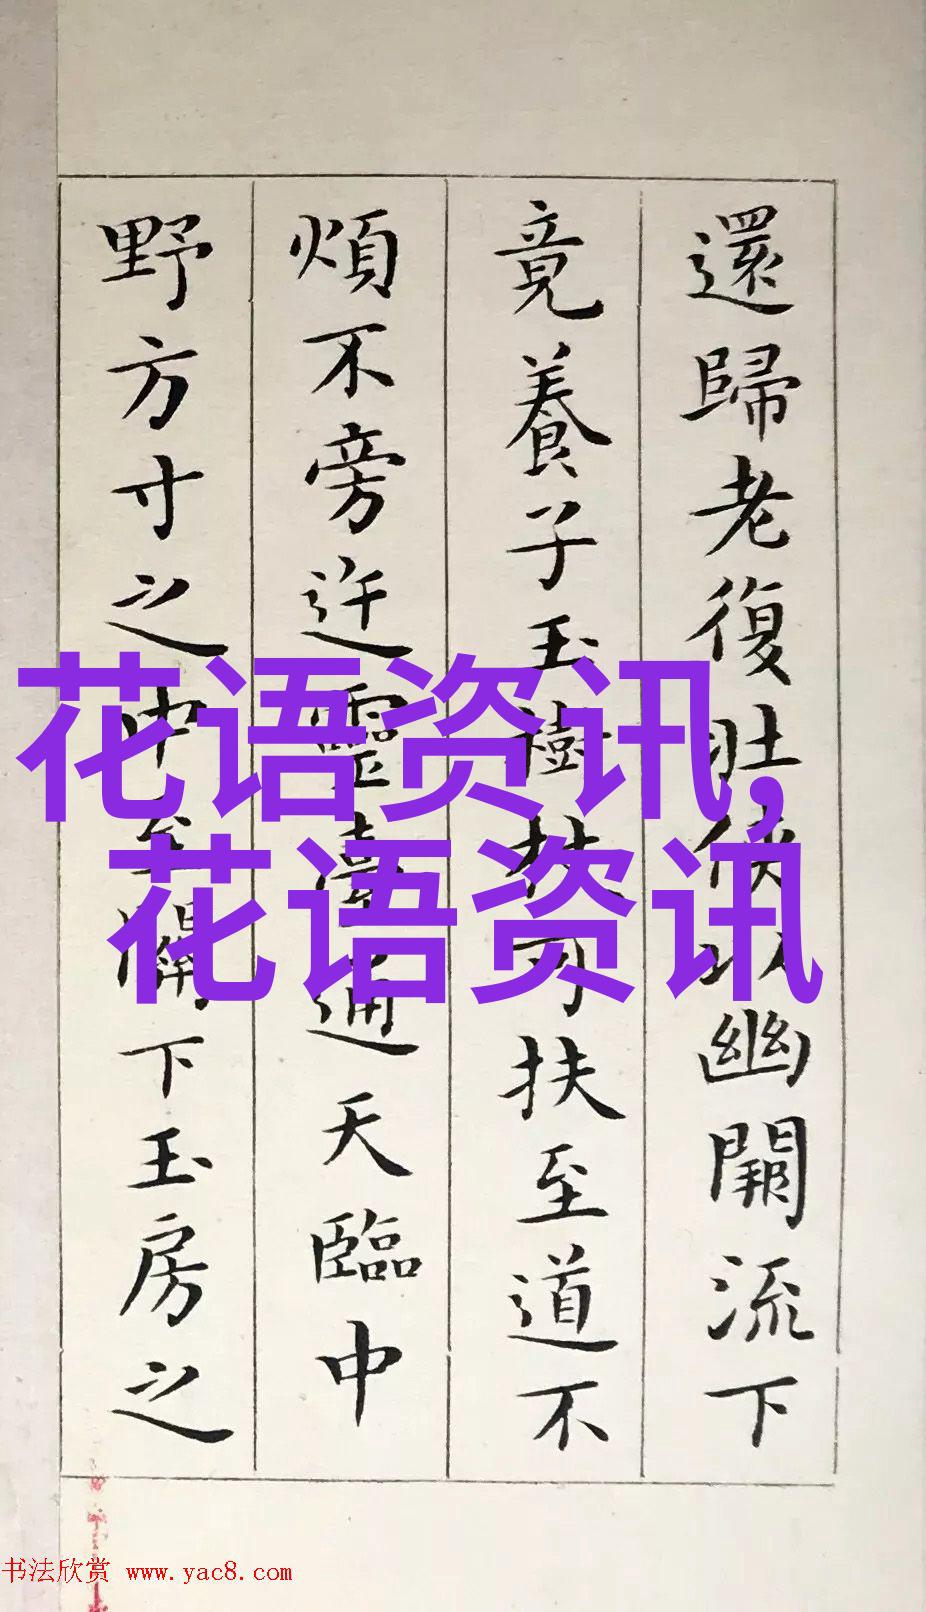 還歸老復壯俠以幽闕流下
竟養子玉樹杖可扶至道不
煩不旁迕靈臺通天臨中
野方寸之中至關下玉房之
花语资讯,
花语资讯
书法欣赏 www.yac8.com